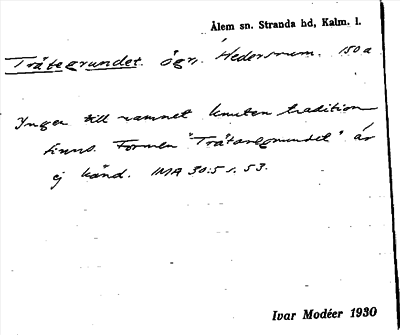 Ålem sn. Stranda hd, Kalm. l.
Tråtegrundet. ögr. Hedersrum. 150a
Ingen till namnet knuten tradition
finns. Formen "Tråtaregrundet" är
ej känd. IMA 30:5 s. 53.
Ivar Modéer 1930